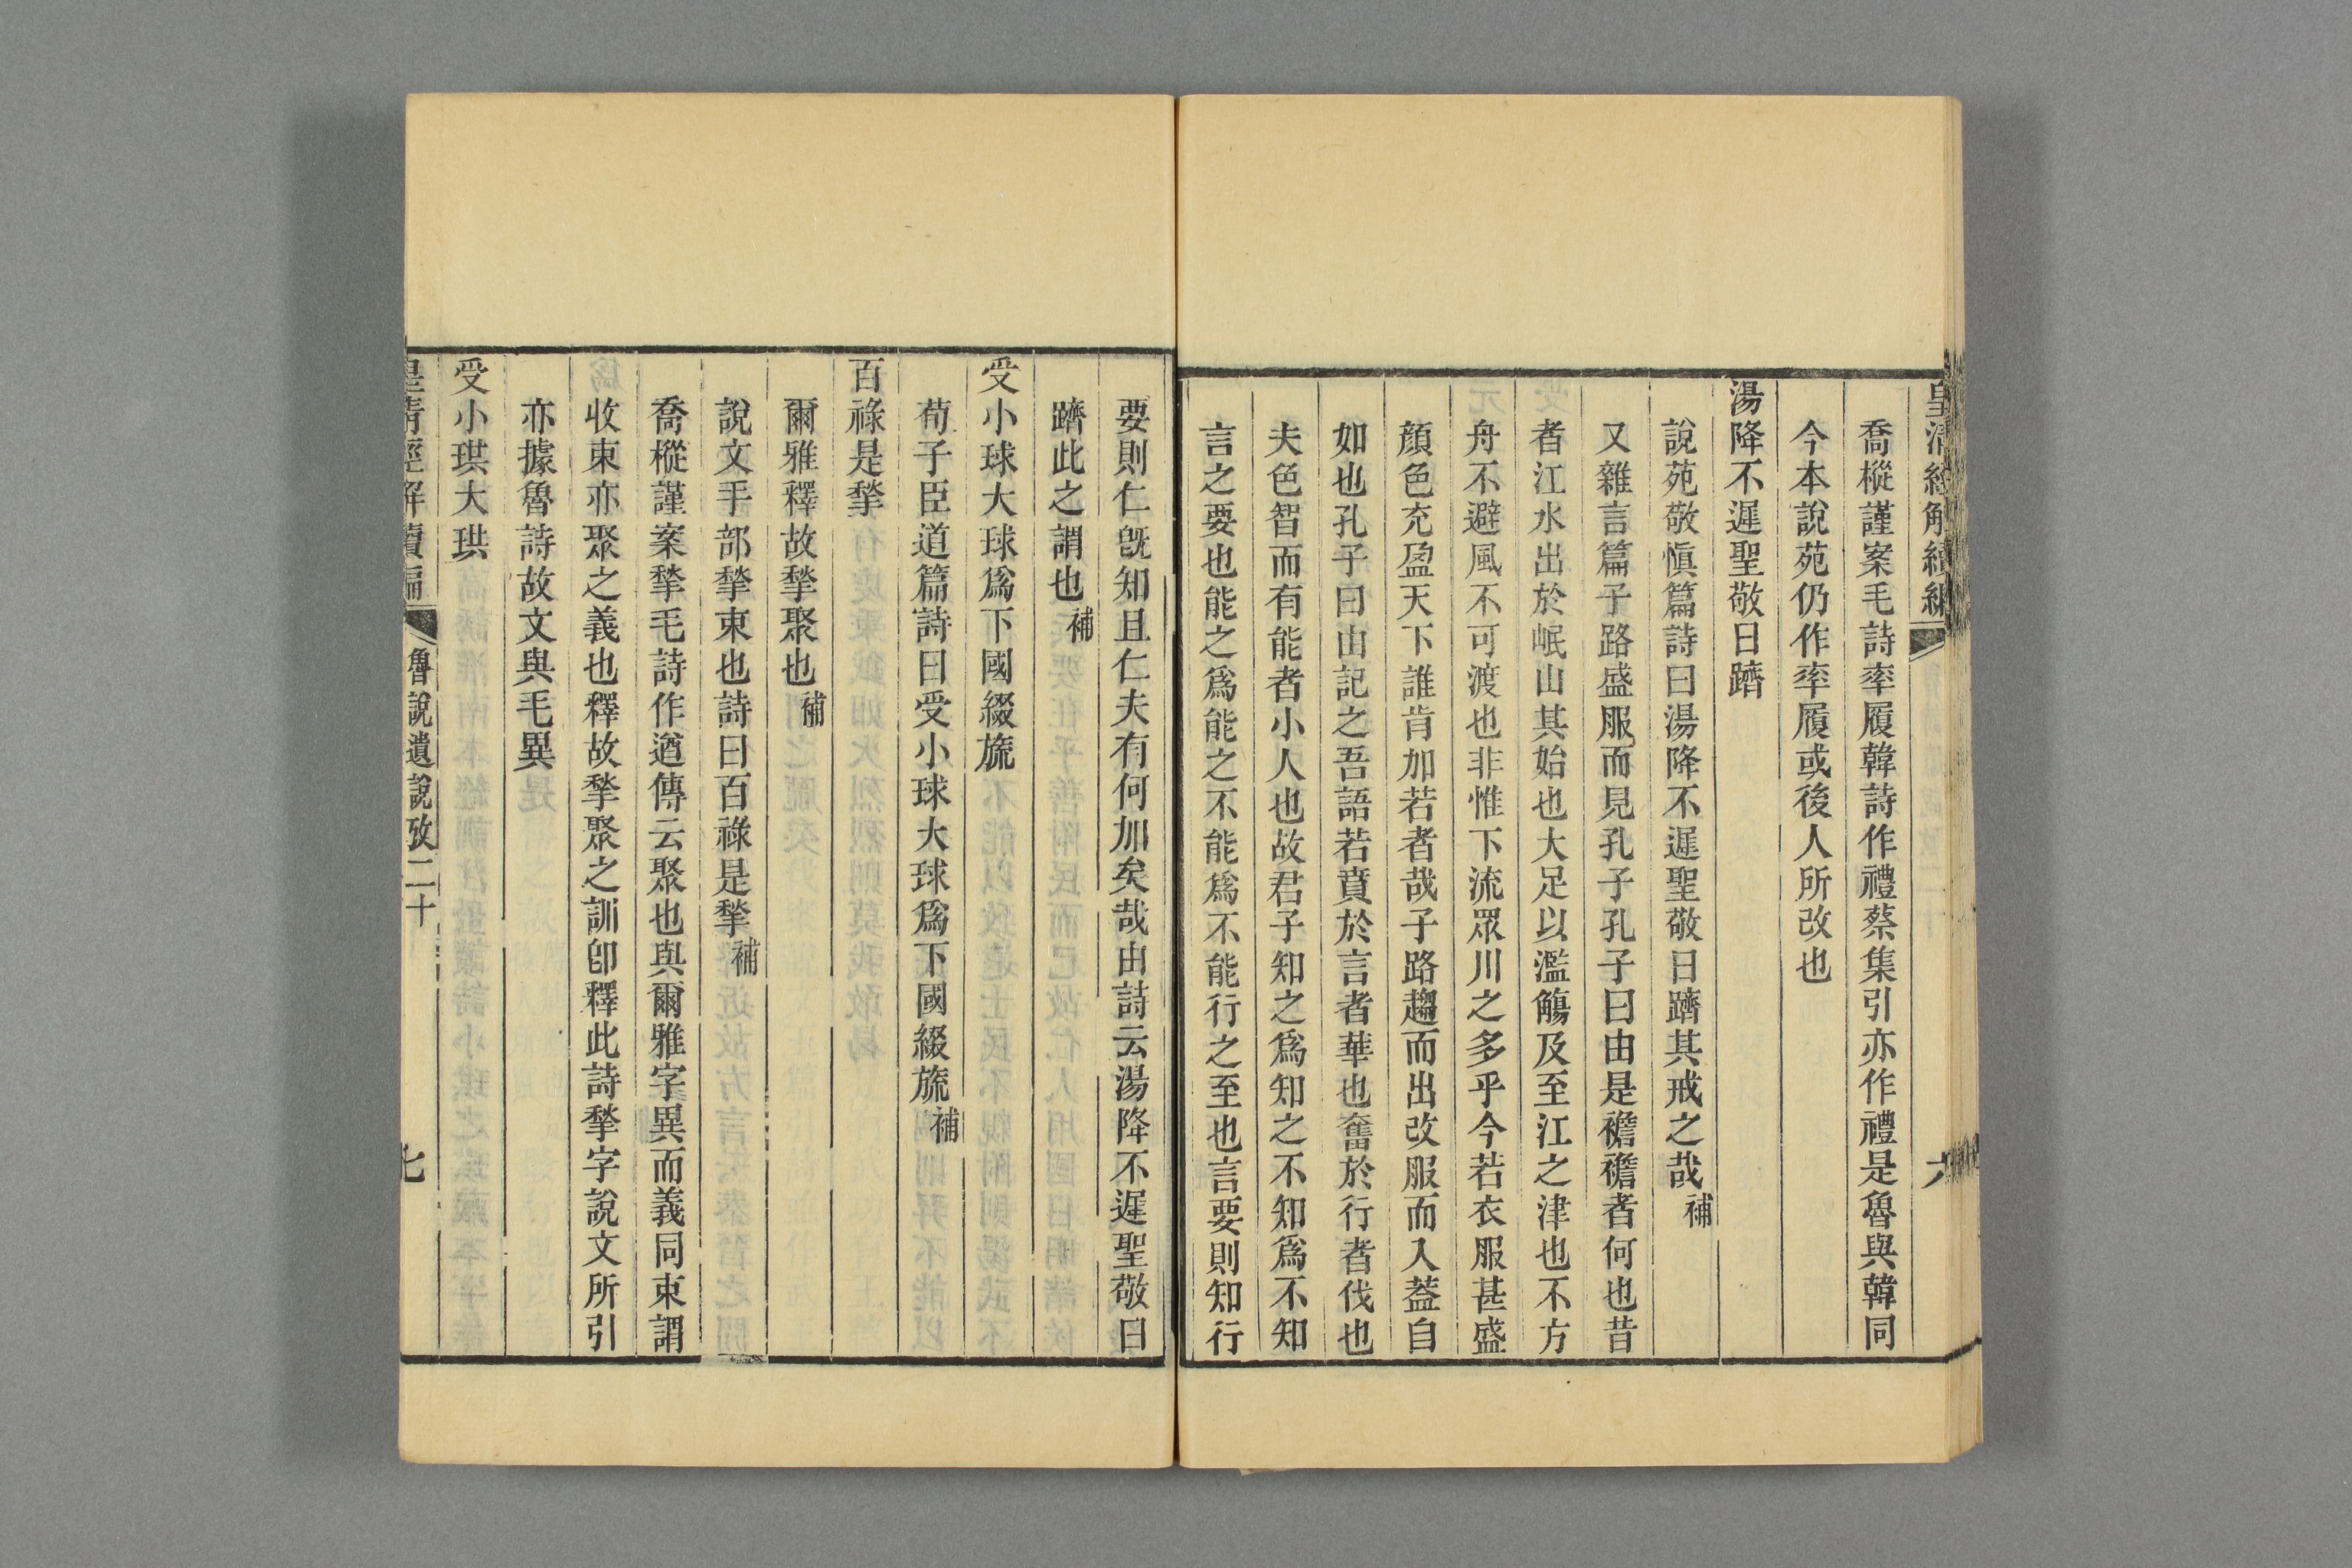 皇清經解續編
六
喬樅謹案毛詩率履韓詩作禮蔡集引亦作禮是魯與韓同
今本說苑仍作率履或後人所改也
湯降不遲聖敬日躋
說苑敬慎篇詩曰湯降不遲聖敬日躋其戒之哉補
又雜言篇子路盛服而見孔子孔子曰由是襜襜者何也昔
者江水出於岷山其始也大足以濫觴及至江之津也不方
舟不避風不可渡也非惟下流眾川之多乎今若衣服甚盛
顏色充盈天下誰肯加若者哉子路趨而出改服而入蓋自
如也孔子曰由記之吾語若賁於言者華也奮於行者伐也
夫色智而有能者小人也故君子知之爲知之不知爲不知
言之要也能之爲能之不能爲不能行之至也言要則知行
要則仁旣知且仁夫有何加矣哉由詩云湯降不遲聖敬日
躋此之謂也補
受小球大球爲下國綴旒
荀子臣道篇詩曰受小球大球爲下國綴旒補
百祿是揫
爾雅釋故揫聚也補
說文手部揫束也詩曰百祿是揫補
喬樅謹案揫毛詩作遒傳云聚也與爾雅字異而義同束謂
收束亦聚之義也釋故揫聚之訓卽釋此詩揫字說文所引
亦據魯詩故文與毛異
受小珙大珙
皇清經解續編
魯說遺說攷二十
七